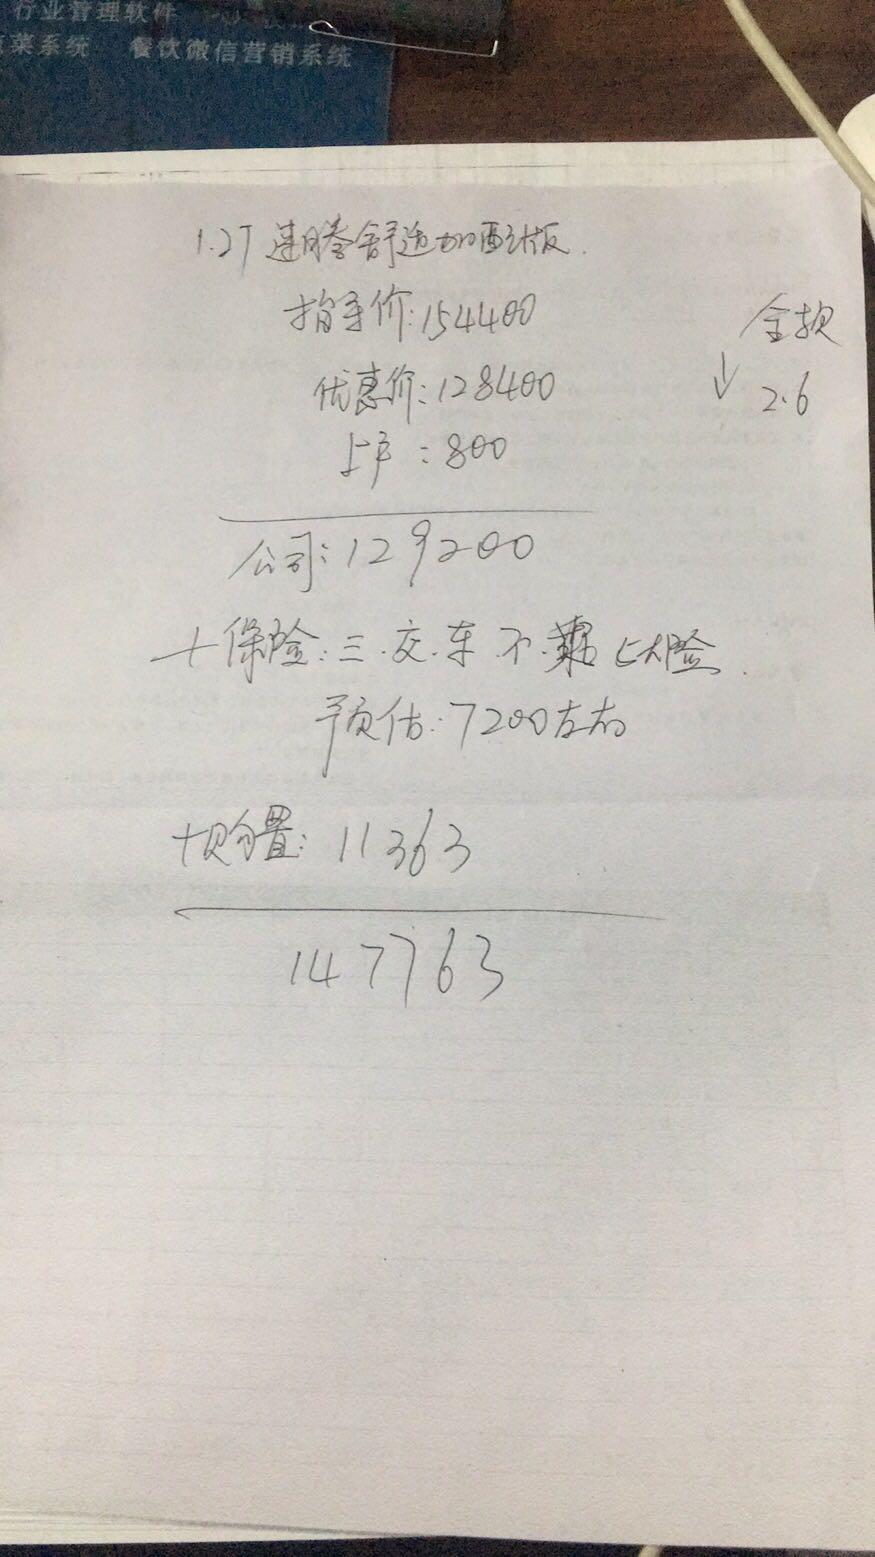 行业管理软件
菜系统 餐饮微信营销系统
1.2T 速腾舒适加配版.
指导价:154400
全款
优惠价:128400
↓ 2.6
上户:800
公司:129200
+保险:三.交.车.不.乘 七大险
预估:7200左右
+购置:11363
147763